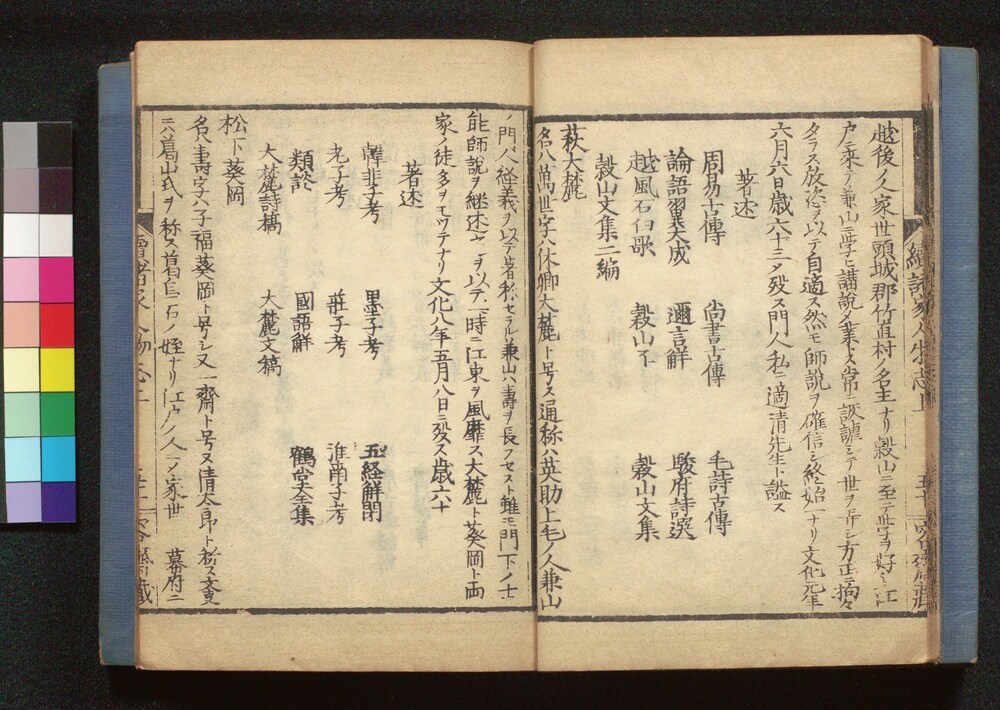 越後ノ人家世頭城郡竹直村ノ名主ナリ穀山ニ至テ学ヲ好ミ江
戸ニ来テ兼山ニ学ヒ講説ヲ業トス常ニ詼謔シテ世ヲ弄シ方正ニ拘々
タラス放恣ヲ以テ自適ス然モ師説ヲ確信シ終始一ナリ文化元年
六月六日歳六十三ニ〆歿ス門人私ニ適清先生ト諡ス
著述
周易古傳 尚書古傳 毛詩古傳
論語翼大成 邇言解 駿府詩選
越風石臼歌 穀山不 穀山文集
穀山文集二編
萩大麓
名ハ萬世字ハ休卿大麓ト号ス通称ハ英助上毛ノ人兼山
ノ門人経義ヲ以テ著称セラル兼山ハ壽ヲ長フセスト雖モ門下ノ士
能師説ヲ継述スルヲ以テ一時ニ江東ヲ風靡ス大麓ト葵岡ト両
家ノ徒多キヲモツテナリ文化八年五月八日ニ歿ス歳六十
著述
韓非子考 墨子考 五経解閉
老子考 荘子考 淮南子考
類於 國語解 鶴堂全集
大麓詩稿 大麓文稿
松下葵岡
名ハ壽字ハ子福葵岡ト号シ又一齋ト号ス清太郎ト称ス文更
ニハ葛山氏ヲ称ス葛烏石ノ姪ナリ江戸ノ人ソノ家世 幕府ニ